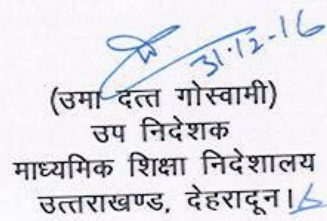 31-12-16
(उमा दत्त गोस्वामी)
उप निदेशक
माध्यमिक शिक्षा निदेशालय
उत्तराखण्ड, देहरादून।